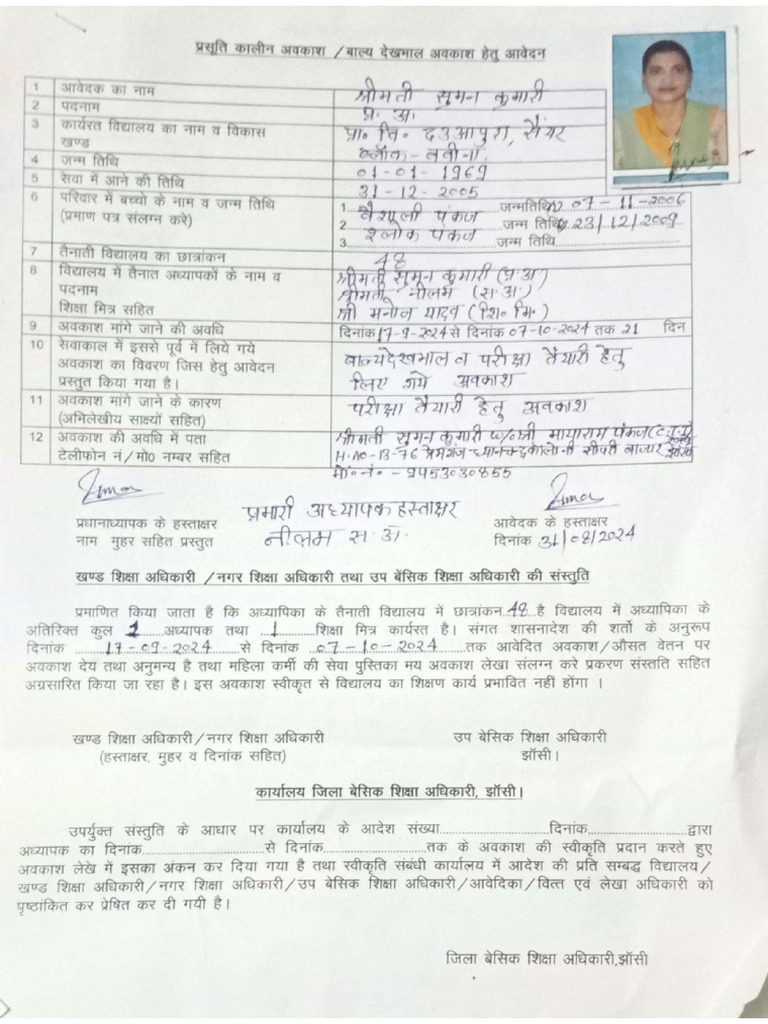 प्रसूति कालीन अवकाश / बाल्य देखमाल अवकाश हेतु आवेदन
1 आवेदक का नाम श्रीमती सुमन कुमारी
2 पदनाम प्र. अ.
3 कार्यरत विद्यालय का नाम व विकास खण्ड प्रा० वि० दउआपुरा, सैंयर
ब्लॉक-बबीना.
4 जन्म तिथि 01-01-1969
5 सेवा में आने की तिथि 31-12-2005
6 परिवार में बच्चो के नाम व जन्म तिथि 1. वैशाली पंकज जन्मतिथि 07-11-2006
(प्रमाण पत्र संलग्न करे) 2. श्लोक पंकज जन्म तिथि 23/12/2009
3. जन्म तिथि
7 तैनाती विद्यालय का छात्रांकन 48
8 विद्यालय में तैनात अध्यापकों के नाम व श्रीमती सुमन कुमारी (प्र.अ)
पदनाम श्रीमती नीलम (स.अ.)
शिक्षा मित्र सहित श्री मनोज यादव (शि. मि.)
9 अवकाश मांगे जाने की अवधि दिनांक 17-9-2024 से दिनांक 07-10-2024 तक 21 दिन
10 सेवाकाल में इससे पूर्व में लिये गये बाल्यदेखभाल व परीक्षा तैयारी हेतु
अवकाश का विवरण जिस हेतु आवेदन लिए गये अवकाश
प्रस्तुत किया गया है।
11 अवकाश मांगे जाने के कारण परीक्षा तैयारी हेतु अवकाश
(अभिलेखीय साक्ष्यों सहित)
12 अवकाश की अवधि में पता श्रीमती सुमन कुमारी W/o श्री मायाराम पंकज
टेलीफोन नं/मो0 नम्बर सहित H.NO-13-76 प्रेमगंज ध्यानचन्द्र कालोनी सीपरी बाजार झाँसी
मो०नं० - 9453030855
प्रधानाध्यापक के हस्ताक्षर प्रभारी अध्यापक हस्ताक्षर आवेदक के हस्ताक्षर
नाम मुहर सहित प्रस्तुत नीलम स.अ. दिनांक 31/08/2024
खण्ड शिक्षा अधिकारी / नगर शिक्षा अधिकारी तथा उप बेसिक शिक्षा अधिकारी की संस्तुति
प्रमाणित किया जाता है कि अध्यापिका के तैनाती विद्यालय में छात्रांकन 48 है विद्यालय में अध्यापिका के
अतिरिक्त कुल 1 अध्यापक तथा 1 शिक्षा मित्र कार्यरत है। संगत शासनादेश की शर्तो के अनुरूप
दिनांक 17-09-2024 से दिनांक 07-10-2024 तक आवेदित अवकाश/औसत वेतन पर
अवकाश देय तथा अनुमन्य है तथा महिला कर्मी की सेवा पुस्तिका मय अवकाश लेखा संलग्न करे प्रकरण संस्तति सहित
अग्रसारित किया जा रहा है। इस अवकाश स्वीकृत से विद्यालय का शिक्षण कार्य प्रभावित नहीं होंगा ।
खण्ड शिक्षा अधिकारी/नगर शिक्षा अधिकारी उप बेसिक शिक्षा अधिकारी
(हस्ताक्षर, मुहर व दिनांक सहित) झाँसी।
कार्यालय जिला बेसिक शिक्षा अधिकारी, झाँसी।
उपर्युक्त संस्तुति के आधार पर कार्यालय के आदेश संख्या....................दिनांक....................द्वारा
अध्यापक का दिनांक....................से दिनांक....................तक के अवकाश की स्वीकृति प्रदान करते हुए
अवकाश लेखे में इसका अंकन कर दिया गया है तथा स्वीकृति संबंधी कार्यालय में आदेश की प्रति सम्बद्ध विद्यालय/
खण्ड शिक्षा अधिकारी/नगर शिक्षा अधिकारी/उप बेसिक शिक्षा अधिकारी/आवेदिका/वित्त एवं लेखा अधिकारी को
पृष्ठांकित कर प्रेषित कर दी गयी है।
जिला बेसिक शिक्षा अधिकारी,झाँसी